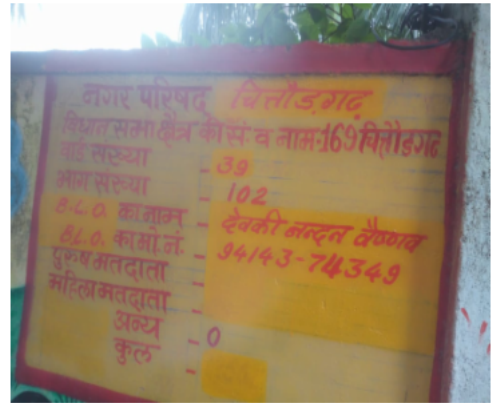 नगर परिषद् चित्तौड़गढ़
विधानसभा क्षेत्र की सं. व नाम-169 चित्तौडगढ
वार्ड संख्या - 39
भाग संख्या - 102
B.L.O. का नाम - देवकी नन्दन वैष्णव
B.L.O. का मो. नं. - 94143-74349
पुरुष मतदाता -
महिला मतदाता -
अन्य - 0
कुल -